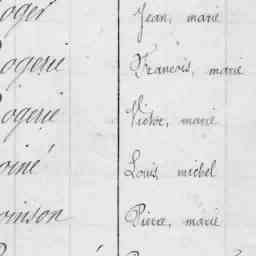 oger Jean, marie
ogerie François, marie
ogerie Victor, marie
oiné Louis, michel
oinson Pierre, marie